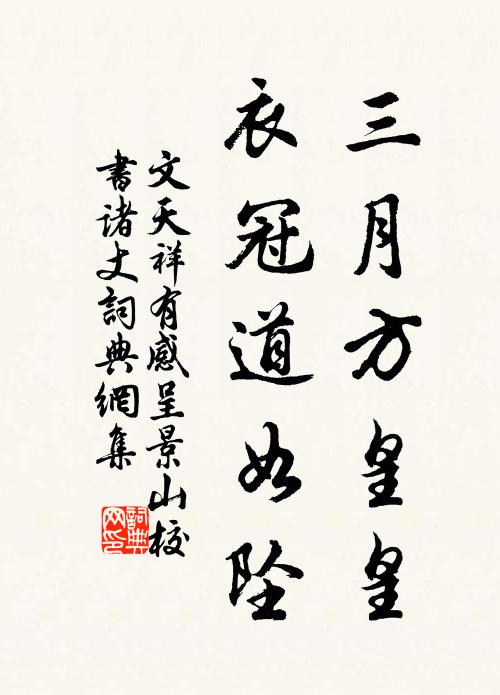 三月方皇皇
衣冠道如坠
文天祥有感呈景山校
書诸丈詞典網集
詞典网印